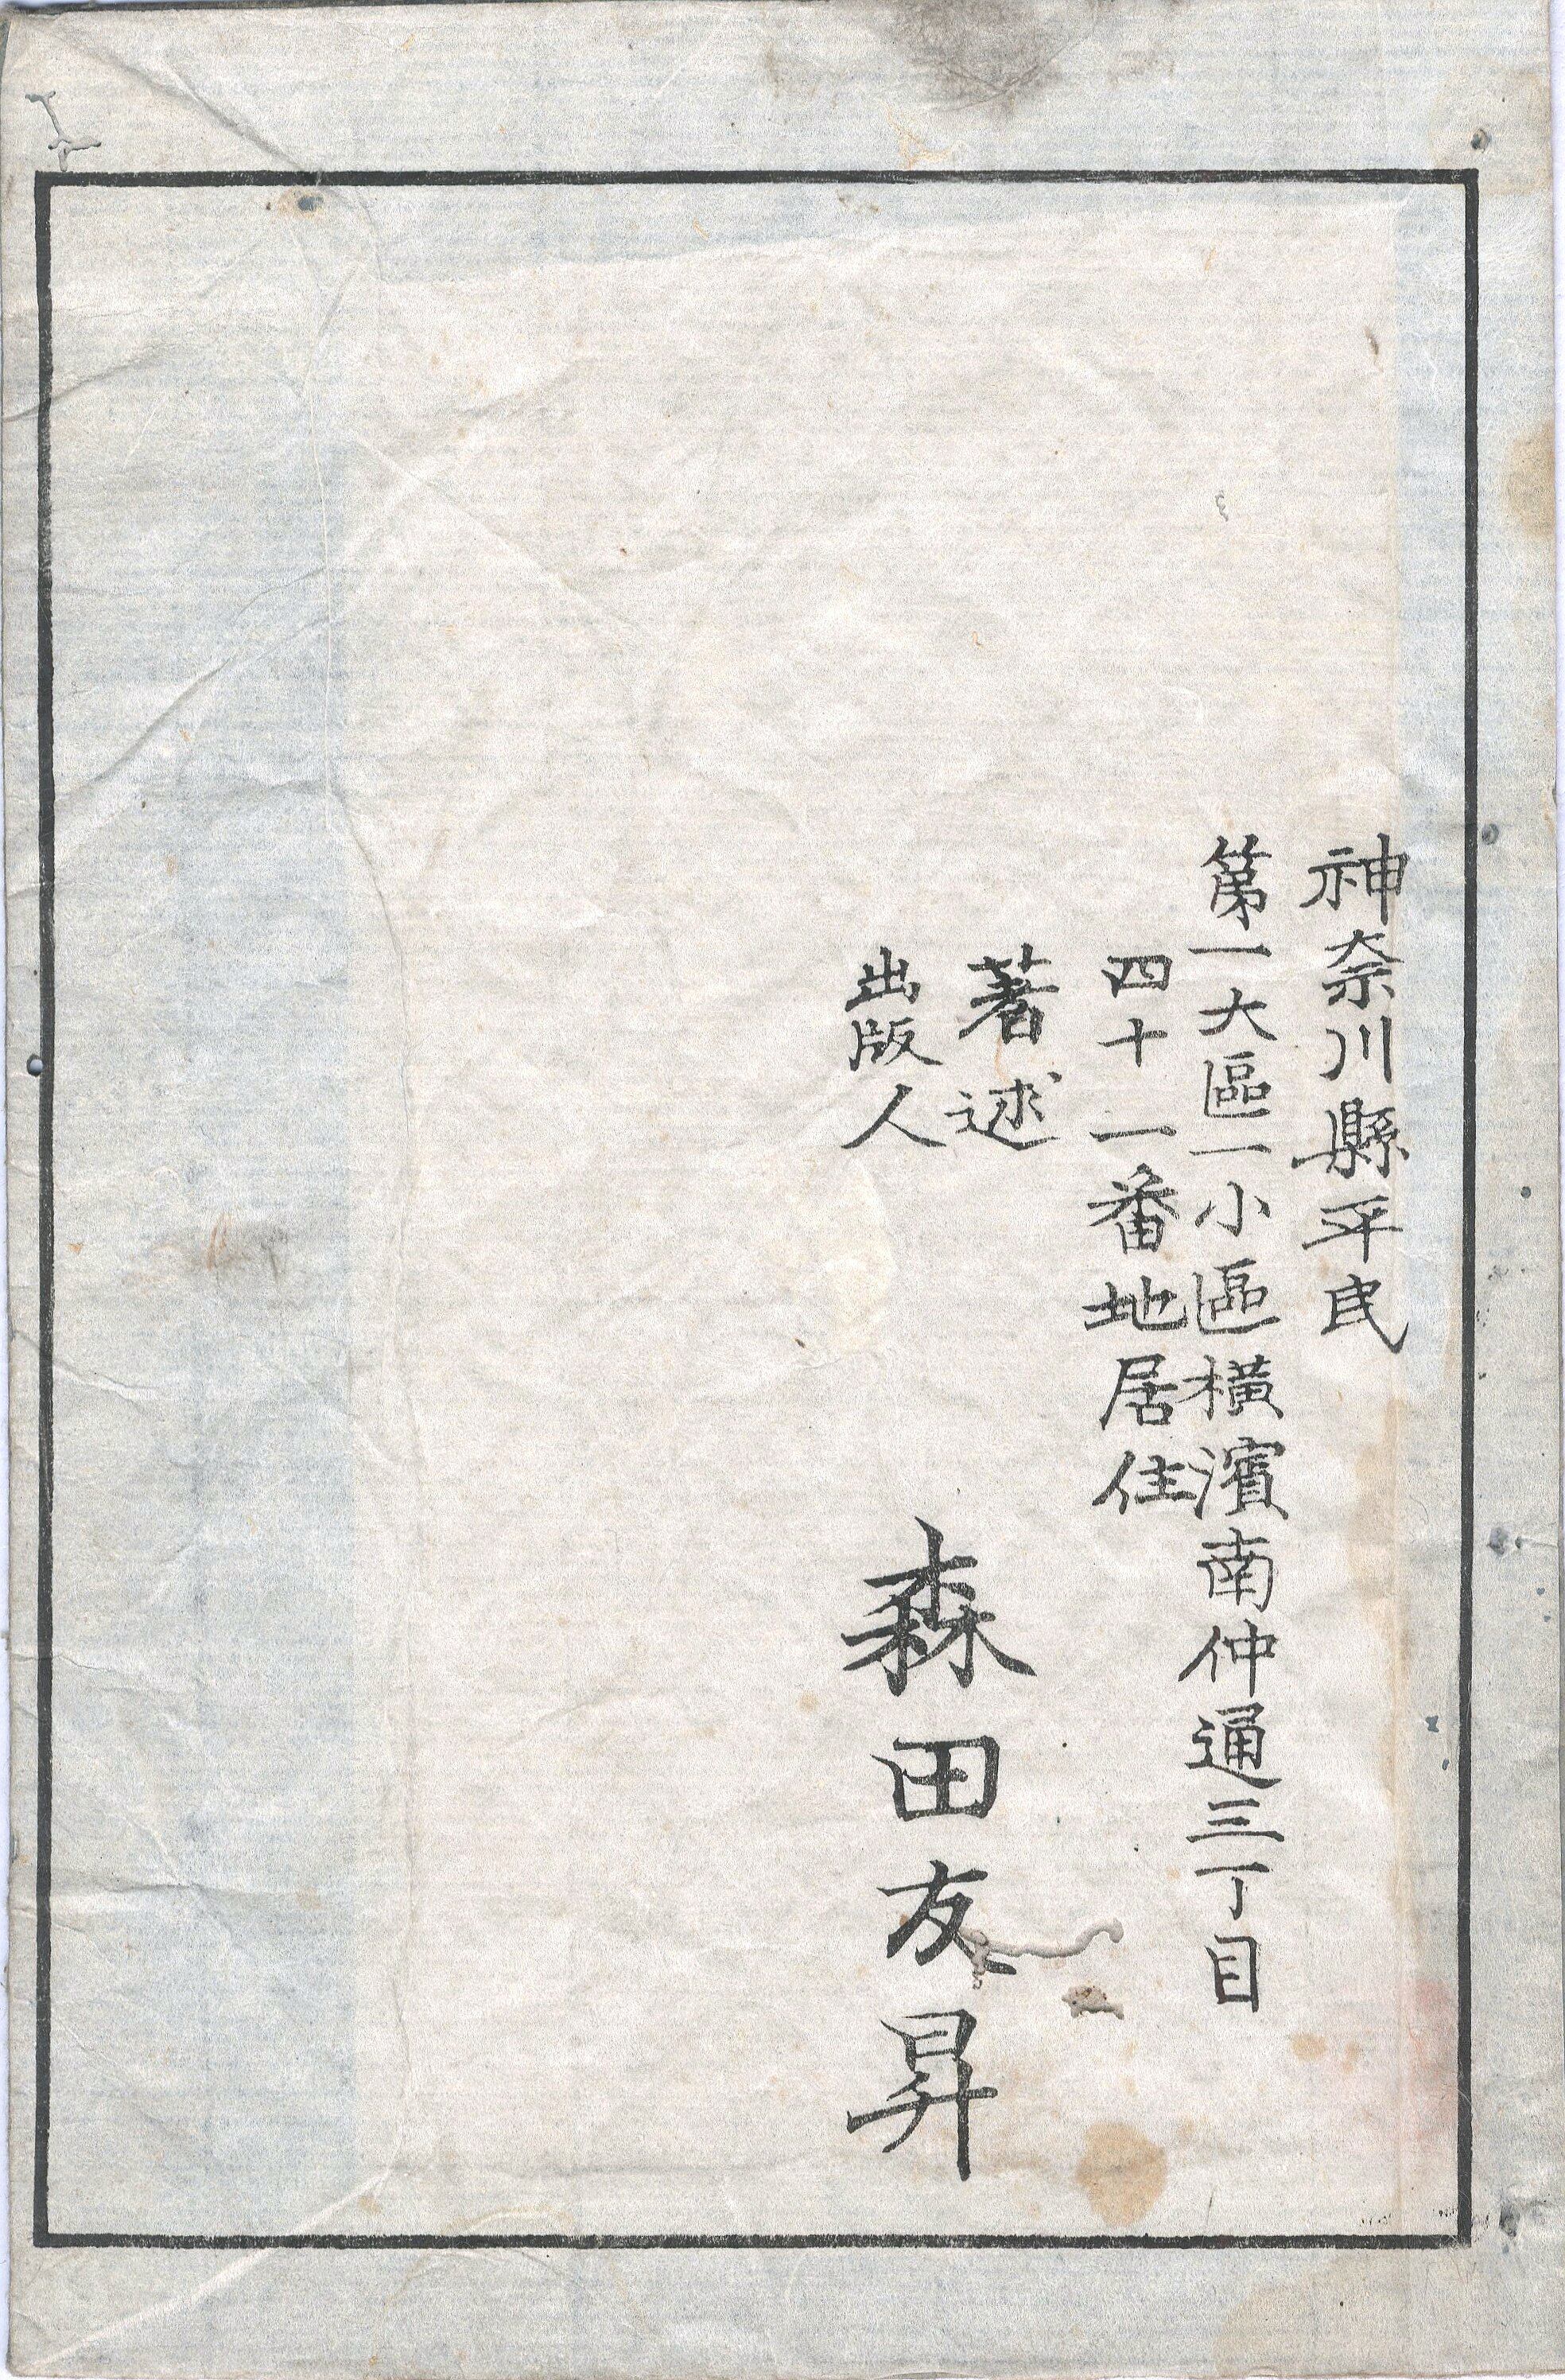 神奈川縣平民
第一大區一小區橫濱南仲通三丁目
四十一番地居住
著述
出版人
森田友昇